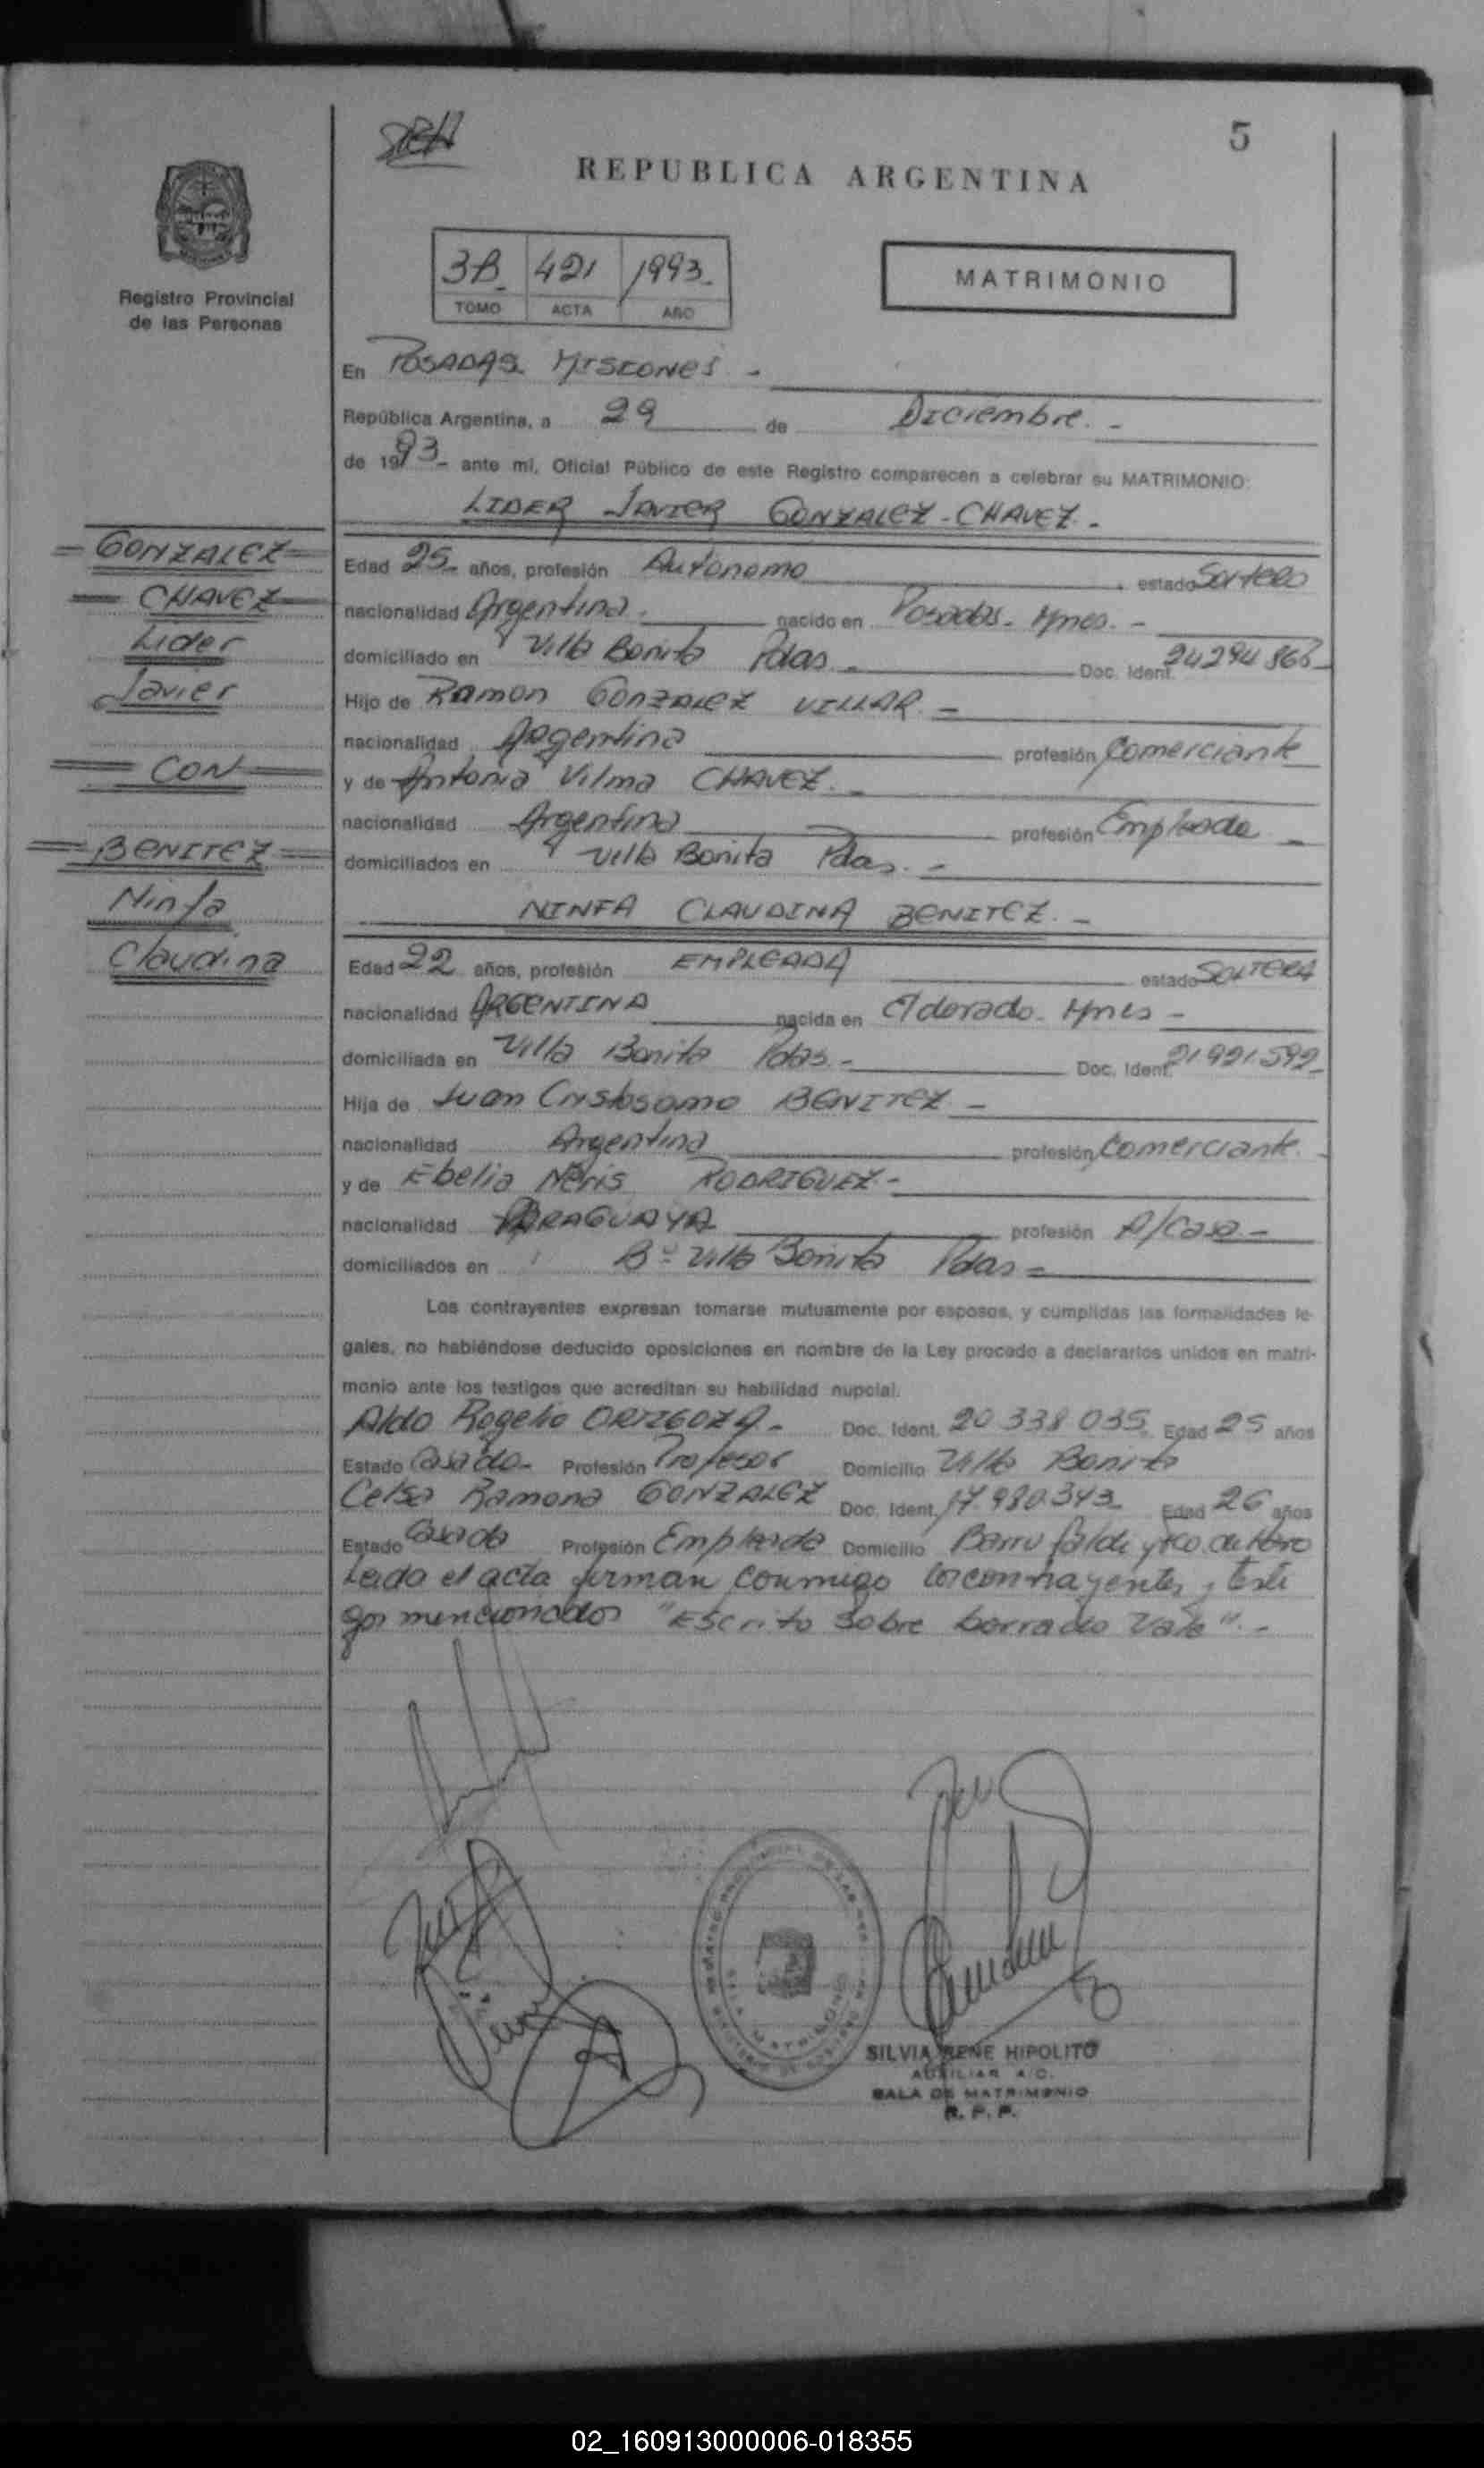 5
REPUBLICA ARGENTINA
Registro Provincial
de las Personas
3B 421 1993.
TOMO ACTA AÑO
MATRIMONIO
En POSADAS MISIONES -
República Argentina, a 29 de Diciembre. -
de 1993- ante mi, Oficial Público de este Registro comparecen a celebrar su MATRIMONIO:
LIDER JAVIER GONZALEZ-CHAVEZ. -
= GONZALEZ =
= CHAVEZ =
Lider
Javier
= CON =
= BENITEZ =
Ninfa
Claudina
Edad 25 años, profesión Autonomo estado Soltero
nacionalidad Argentina. nacido en Posadas. Mnes. -
domiciliado en Villa Bonita Pdas - Doc. Ident. 24294866-
Hijo de Ramon GONZALEZ VILLAR. -
nacionalidad Argentina profesión Comerciante
y de Antonia Vilma CHAVEZ. -
nacionalidad Argentina profesión Empleada -
domiciliados en Villa Bonita Pdas. -
NINFA CLAUDINA BENITEZ. -
Edad 22 años, profesión EMPLEADA estado SOLTERA
nacionalidad ARGENTINA nacida en Eldorado. Mnes -
domiciliada en Villa Bonita Pdas. - Doc. Ident. 21921.592-
Hija de Juan Cristosomo BENITEZ -
nacionalidad Argentina profesión Comerciante.
y de Ebelia Neris RODRIGUEZ. -
nacionalidad PARAGUAYA profesión A/Casa -
domiciliados en Bº Villa Bonita Pdas -
Los contrayentes expresan tomarse mutuamente por esposos, y cumplidas las formalidades le-
gales, no habiéndose deducido oposiciones en nombre de la Ley procedo a declararlos unidos en matri-
monio ante los testigos que acreditan su habilidad nupcial.
Aldo Rogelio ORTIGOZA. - Doc. Ident. 20 338 035 Edad 25 años
Estado Casado - Profesión Profesor Domicilio Villa Bonita
Celsa Ramona GONZALEZ Doc. Ident. 17.980.343 Edad 26 años
Estado Casada Profesión Empleada Domicilio Barrio
Leida el acta firman conmigo los contrayentes y testi
gos mencionados "Escrito sobre borrado Vale". -
SILVIA RENE HIPOLITO
AUXILIAR A/C.
SALA DE MATRIMONIO
R. P. P.
02_160913000006-018355